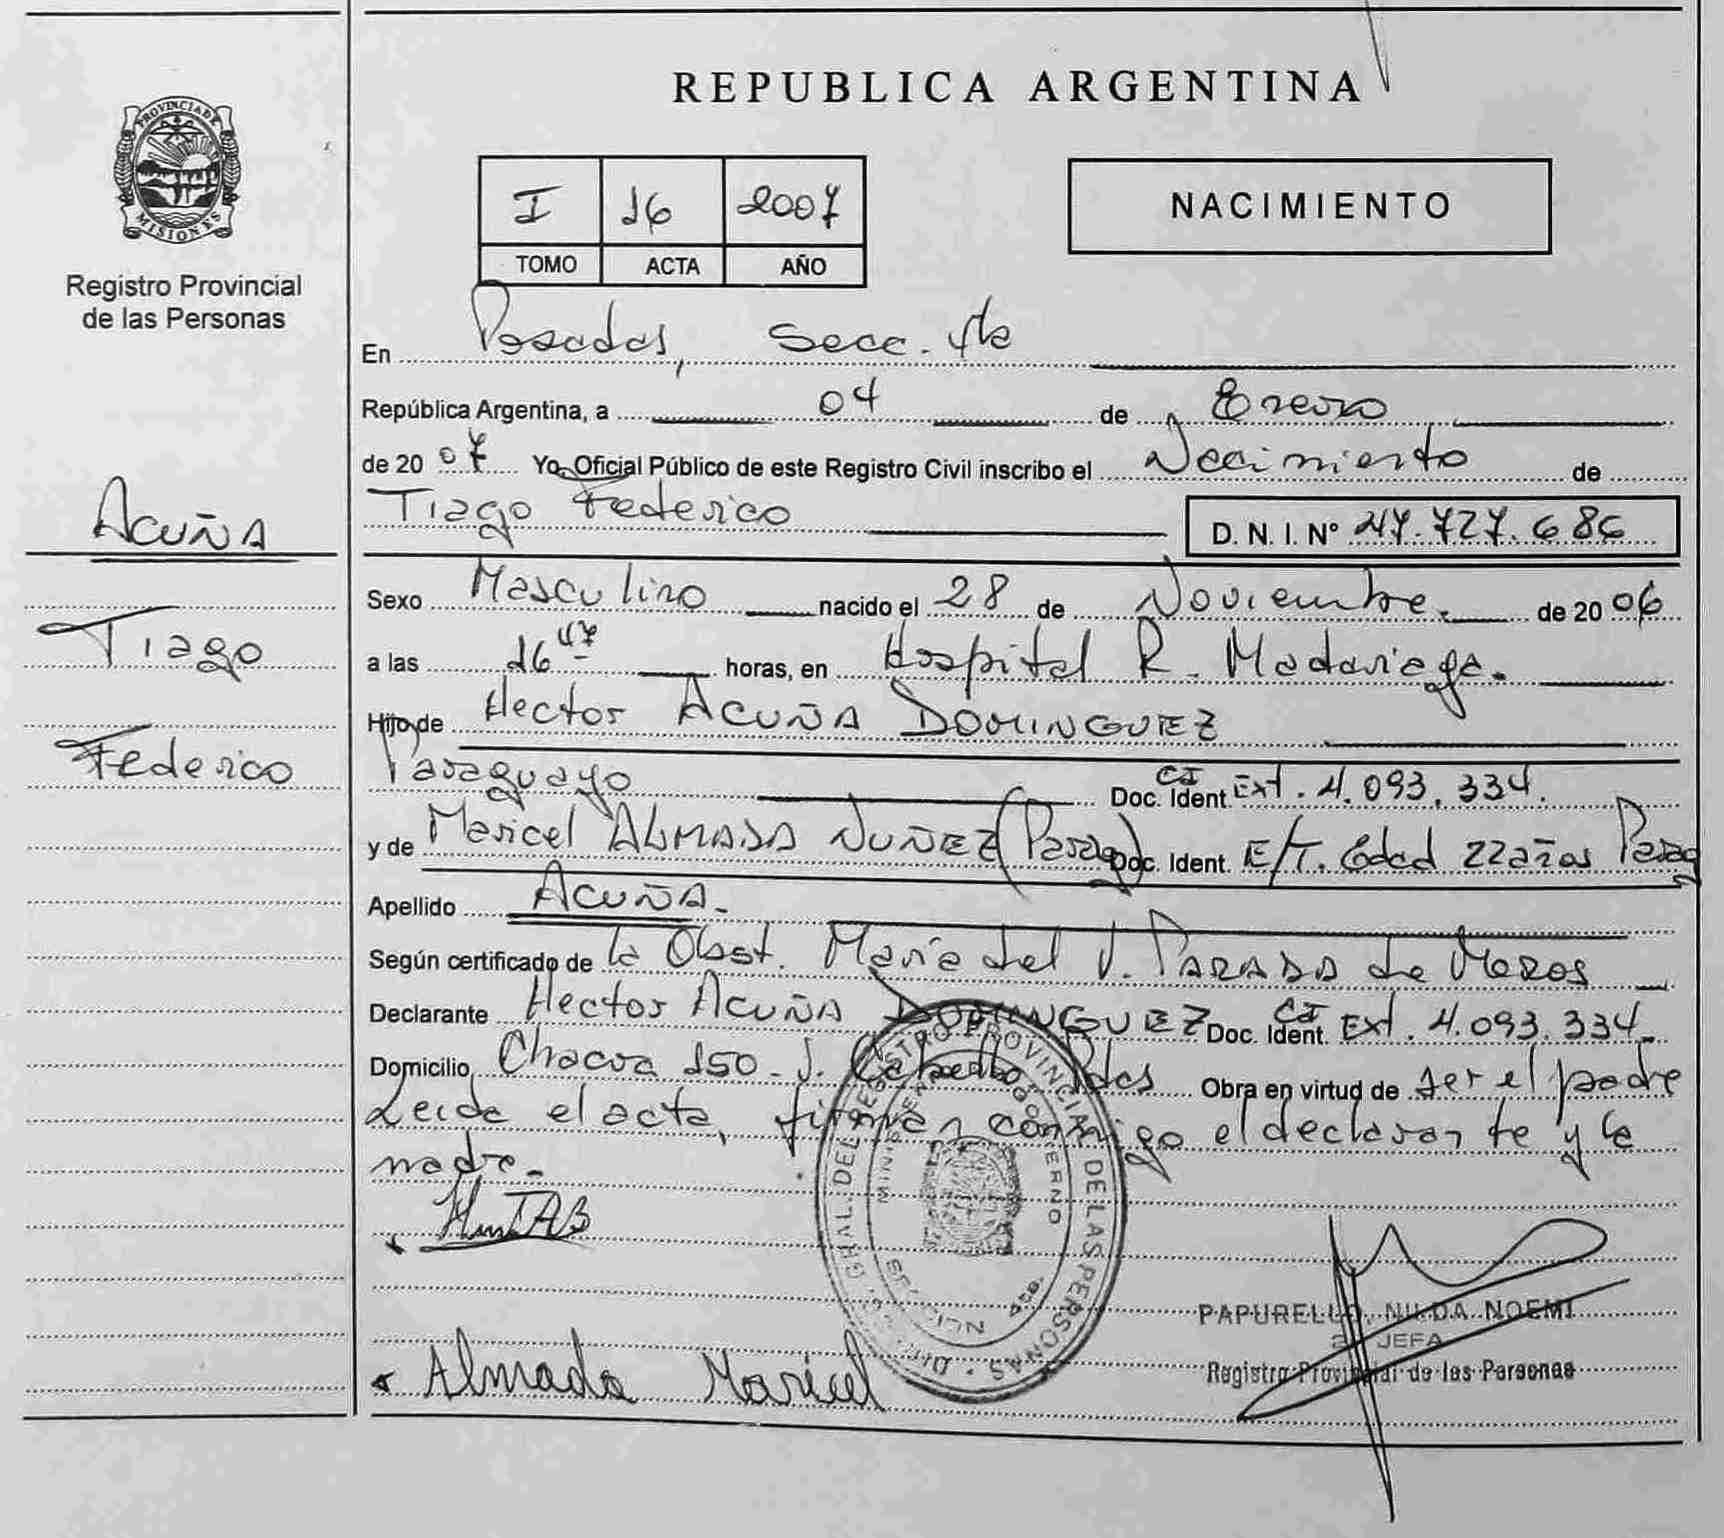 REPUBLICA ARGENTINA
PROVINCIA DE
MISIONES
Registro Provincial
de las Personas
I 16 2007
TOMO ACTA AÑO
NACIMIENTO
En Posadas, Secc. 4ta
República Argentina, a 04 de Enero
de 2007 Yo, Oficial Público de este Registro Civil inscribo el Nacimiento de
Tiago Federico D. N. I. Nº 47.727.686
ACUÑA
Tiago
Federico
Sexo Masculino nacido el 28 de Noviembre. de 2006
a las 16 47 horas, en Hospital R. Madariaga.
Hijo de Hector ACUÑA DOMINGUEZ
Paraguayo Doc. Ident. CI Ext. 4.093.334.
y de Maricel ALMADA NUÑEZ (Parag) Doc. Ident. E/T. Edad 22 años Parag
Apellido ACUÑA.
Según certificado de la Obst. María del V. PARADA de
Declarante Hector ACUÑA DOMINGUEZ Doc. Ident. CI Ext. 4.093.334
Domicilio Chacra 150 - J. Pdas Obra en virtud de ser el padre
Leida el acta, firman conmigo el declarante y la
madre.
Almada Maricel
DIR GRAL. DEL REGISTRO PROVINCIAL DE LAS PERSONAS
GOBIERNO
PAPURELLO, NILDA NOEMI
JEFA
Registro Provincial de las Personas